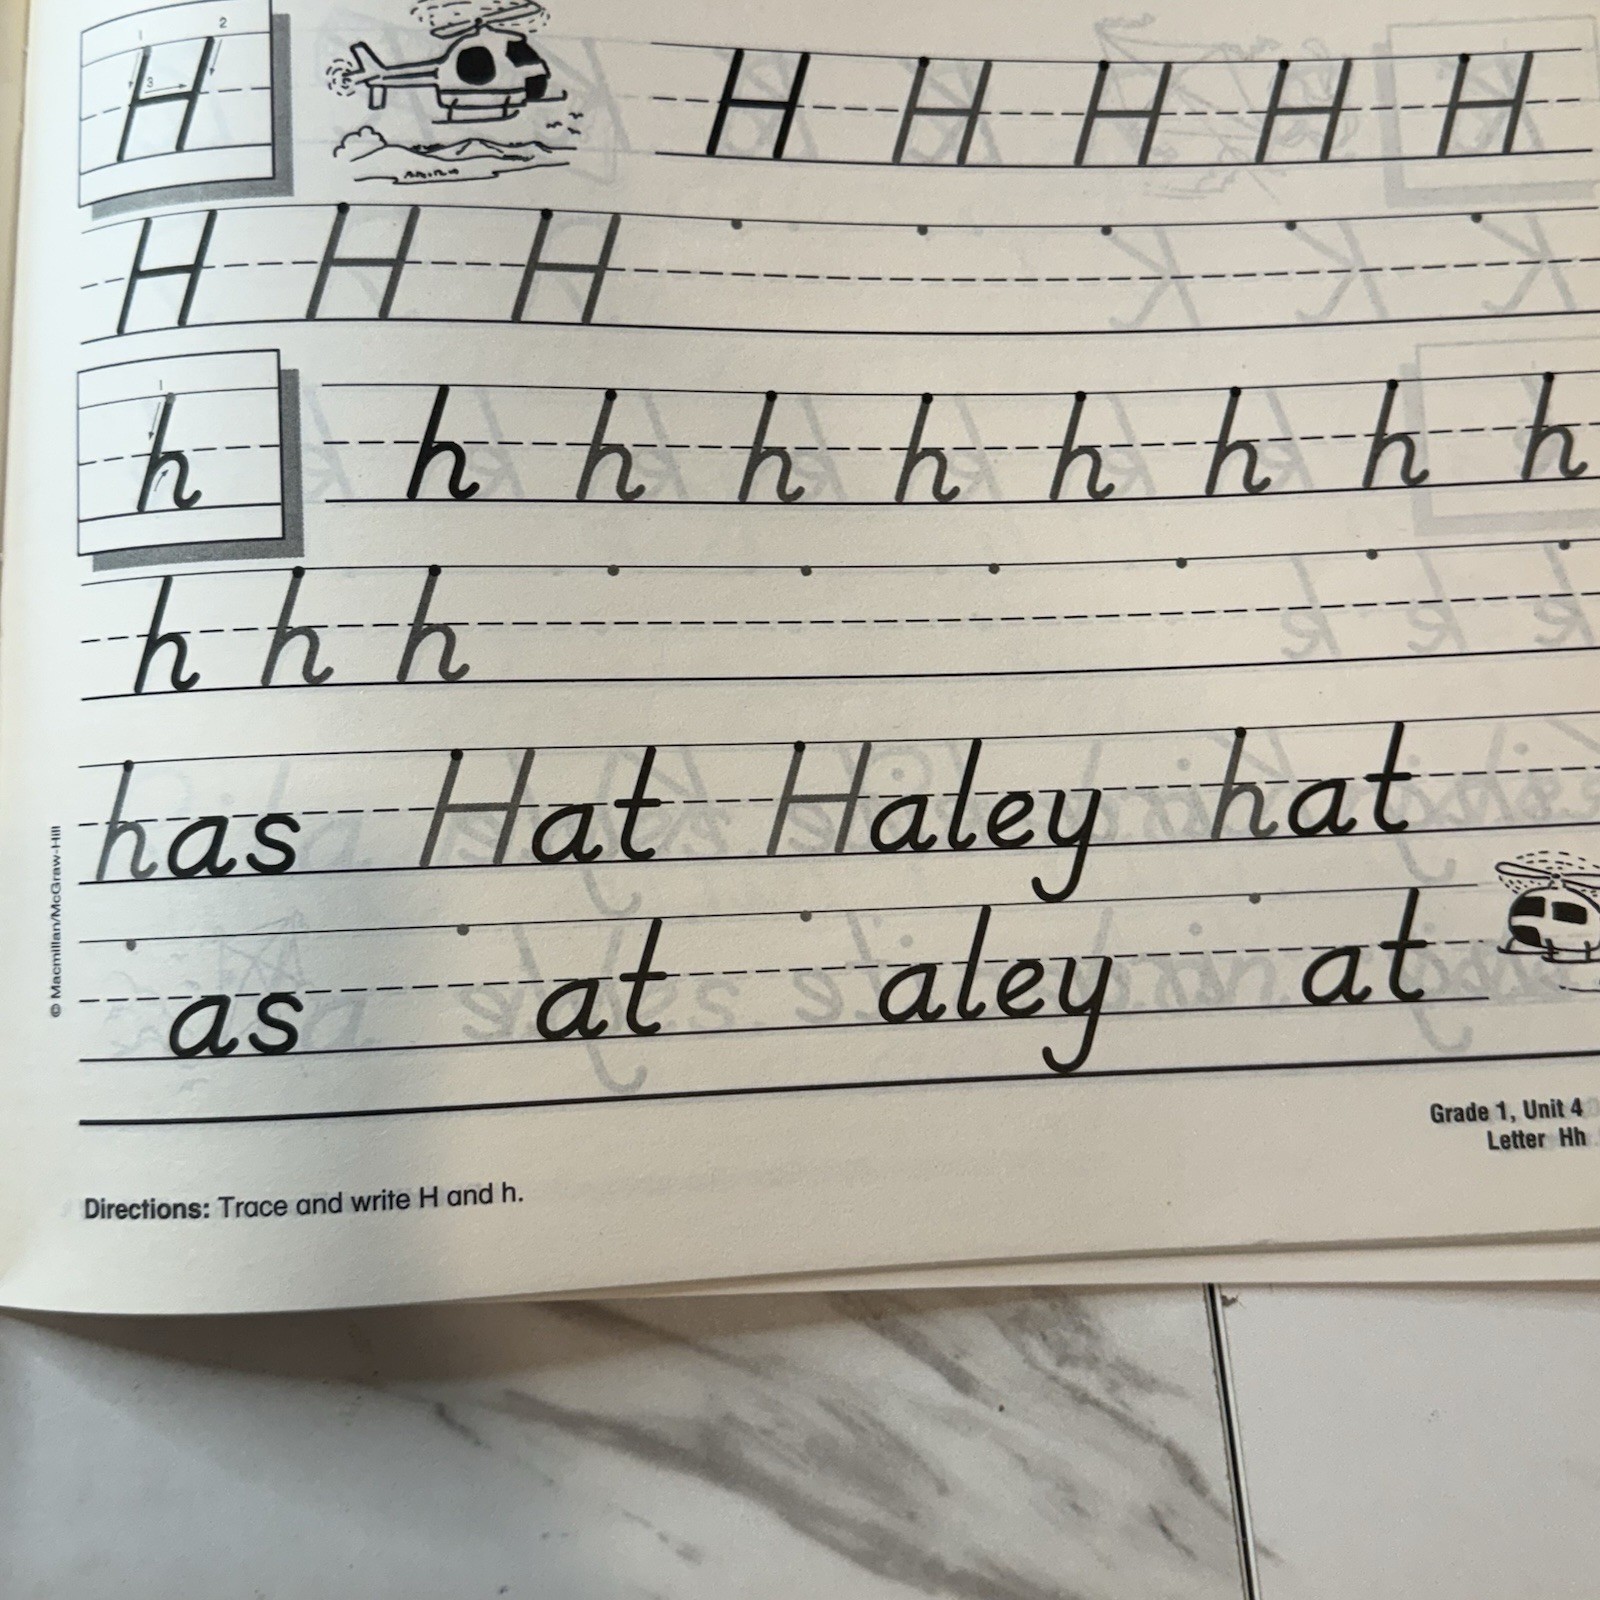 1 2 3 H H H H H H
H H H
1 h h h h h h h h h
h h h
has Hat Haley hat
as at aley at
© Macmillan/McGraw-Hill
Grade 1, Unit 4
Letter Hh
Directions: Trace and write H and h.